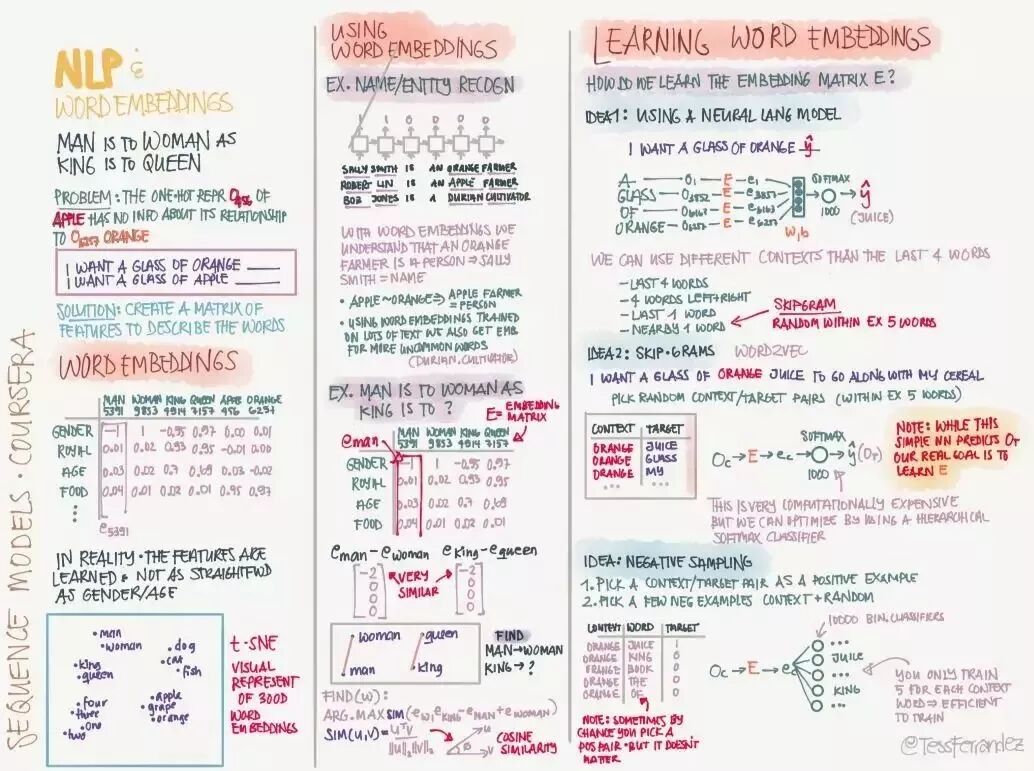 SEQUENCE MODELS · COURSERA
NLP &
WORD EMBEDDINGS
MAN IS TO WOMAN AS
KING IS TO QUEEN
PROBLEM: THE ONE-HOT REPR O456 OF
APPLE HAS NO INFO ABOUT ITS RELATIONSHIP
TO O6257 ORANGE
I WANT A GLASS OF ORANGE ____
I WANT A GLASS OF APPLE ____
SOLUTION: CREATE A MATRIX OF
FEATURES TO DESCRIBE THE WORDS
WORD EMBEDDINGS
MAN WOMAN KING QUEEN APPLE ORANGE
5391 9853 4914 7157 456 6257
GENDER -1 1 -0.95 0.97 0.00 0.01
ROYAL 0.01 0.02 0.93 0.95 -0.01 0.00
AGE 0.03 0.02 0.7 0.69 0.03 -0.02
FOOD 0.04 0.01 0.02 0.01 0.95 0.97
e5391
IN REALITY · THE FEATURES ARE
LEARNED & NOT AS STRAIGHTFWD
AS GENDER/AGE
man
woman
dog
king
cat
queen
fish
four
apple
three
grape
one
orange
two
t-SNE
VISUAL
REPRESENT
OF 300D
WORD
EMBEDDINGS
USING
WORD EMBEDDINGS
EX. NAME/ENTITY RECOGN
1 1 0 0 0 0
SALLY SMITH IS AN ORANGE FARMER
ROBERT LIN IS AN APPLE FARMER
BOB JONES IS A DURIAN CULTIVATOR
WITH WORD EMBEDDINGS WE
UNDERSTAND THAT AN ORANGE
FARMER IS A PERSON ⇒ SALLY
SMITH = NAME
• APPLE ~ ORANGE ⇒ APPLE FARMER
= PERSON
• USING WORD EMBEDDINGS TRAINED
ON LOTS OF TEXT WE ALSO GET EMB.
FOR MORE UNCOMMON WORDS
(DURIAN, CULTIVATOR)
EX. MAN IS TO WOMAN AS
KING IS TO ?
E = EMBEDDING
MATRIX
eman
MAN WOMAN KING QUEEN
5391 9853 4914 7157
GENDER -1 1 -0.95 0.97
ROYAL 0.01 0.02 0.93 0.95
AGE 0.03 0.02 0.7 0.69
FOOD 0.04 0.01 0.02 0.01
eman - ewoman eking - equeen
-2 -2
0 0
0 0
0 0
VERY
SIMILAR
woman
queen
man
king
FIND
MAN→WOMAN
KING→?
FIND(W):
ARG.MAX SIM(ew, eKING - eMAN + eWOMAN)
SIM(U,V) = UTV
||U||2 ||V||2
u
ø
v
COSINE
SIMILARITY
LEARNING WORD EMBEDDINGS
HOW DO WE LEARN THE EMBEDDING MATRIX E?
IDEA 1: USING A NEURAL LANG MODEL
I WANT A GLASS OF ORANGE ŷ
A O1 E e1
GLASS O3852 E e3852
OF O6163 E e6163
ORANGE O6257 E e6257
W,b
SOFTMAX
1000
ŷ
(JUICE)
WE CAN USE DIFFERENT CONTEXTS THAN THE LAST 4 WORDS
- LAST 4 WORDS
- 4 WORDS LEFT+RIGHT
- LAST 1 WORD
- NEARBY 1 WORD
SKIPGRAM
RANDOM WITHIN EX 5 WORDS
IDEA2: SKIP·GRAMS WORD2VEC
I WANT A GLASS OF ORANGE JUICE TO GO ALONG WITH MY CEREAL
PICK RANDOM CONTEXT/TARGET PAIRS (WITHIN EX 5 WORDS)
CONTEXT TARGET
ORANGE JUICE
ORANGE GLASS
ORANGE MY
... ...
Oc → E → ec
SOFTMAX
1000
ŷ (OT)
NOTE: WHILE THIS
SIMPLE NN PREDICTS OT
OUR REAL GOAL IS TO
LEARN E
THIS IS VERY COMPUTATIONALLY EXPENSIVE
BUT WE CAN OPTIMIZE BY USING A HIERARCHICAL
SOFTMAX CLASSIFIER
IDEA: NEGATIVE SAMPLING
1. PICK A CONTEXT/TARGET PAIR AS A POSITIVE EXAMPLE
2. PICK A FEW NEG EXAMPLES CONTEXT + RANDOM
CONTEXT WORD TARGET
ORANGE JUICE 1
ORANGE KING 0
ORANGE BOOK 0
ORANGE THE 0
ORANGE OF 0
NOTE: SOMETIMES BY
CHANCE YOU PICK A
POS PAIR · BUT IT DOESN'T
MATTER
Oc → E → ec
10000 BIN. CLASSIFIERS
...
JUICE
...
KING
YOU ONLY TRAIN
5 FOR EACH CONTEXT
WORD ⇒ EFFICIENT
TO TRAIN
@TessFerrandez